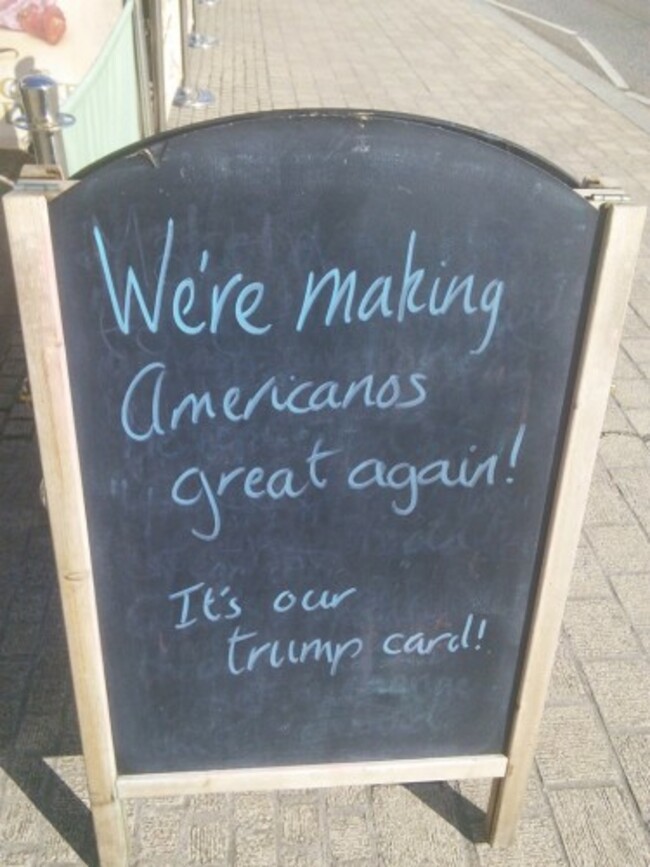 We're making
Americanos
great again!
It's our
trump card!